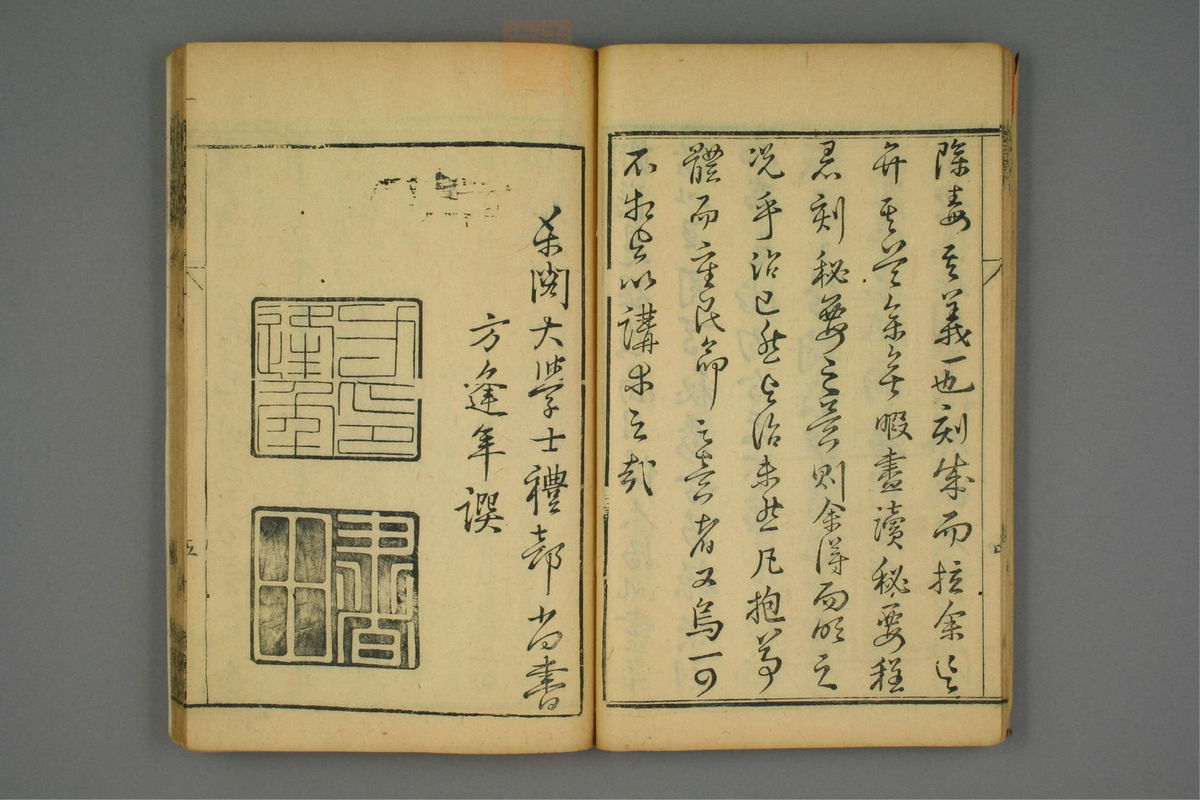 除毒其義一也刻成而拉余言
弁其首余無暇盡讀秘要程
君刻秘要之意則余得而明之
况乎治已然与治未然凡抱尊
體而重民命之意者又烏可
不相与以講求之哉
東閣大學士禮部尚書
方逢年譔
方逢年印
書田
五